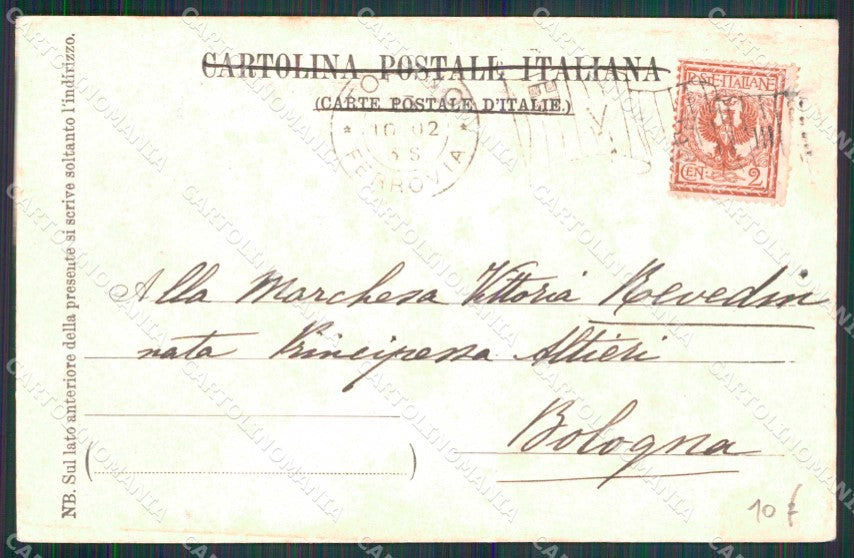 CARTOLINA POSTALE ITALIANA
(CARTE POSTALE D'ITALIE)
POSTE ITALIANE
CEN: 2
10 02
FERROVIA
Alla Marchesa Vittoria Revedin
nata Principessa Altieri
Bologna
NB. Sul lato anteriore della presente si scrive soltanto l'indirizzo.
10
CARTOLINOMANIA